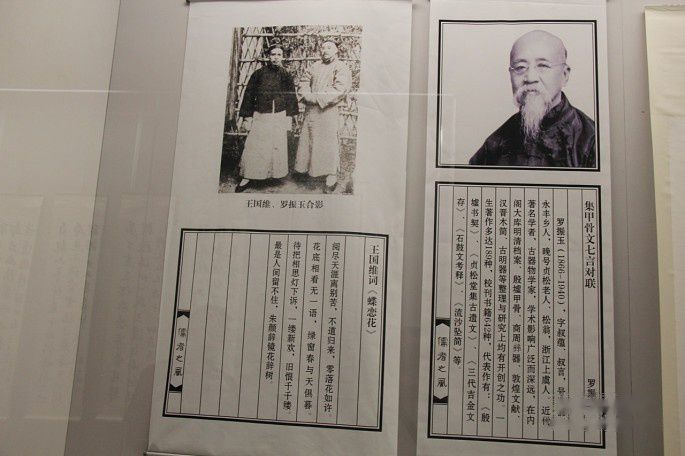 王国维、罗振玉合影
王国维词《蝶恋花》
阅尽天涯离别苦，不道归来，零落花如许。
花底相看无一语，绿窗春与天俱暮。
待把相思灯下诉，一缕新欢，旧恨千千缕。
最是人间留不住，朱颜辞镜花辞树。
儒者之风
集甲骨文七言对联
罗振
罗振玉（1866-1940），字叔蕴、叔言，号
永丰乡人，晚号贞松老人、松翁，浙江上虞人，近代
著名学者，古器物学家，学术影响广泛而深远，在内
阁大库明清档案、殷墟甲骨、商周彝器、敦煌文献、
汉晋木简、古明器等整理与研究上均有开创之功，一
生著作多达189种，校刊书籍642种，代表作有：《殷
墟书契》、《贞松堂集古遗文》、《三代吉金文
存》、《石鼓文考释》、《流沙坠简》等。
儒者之风